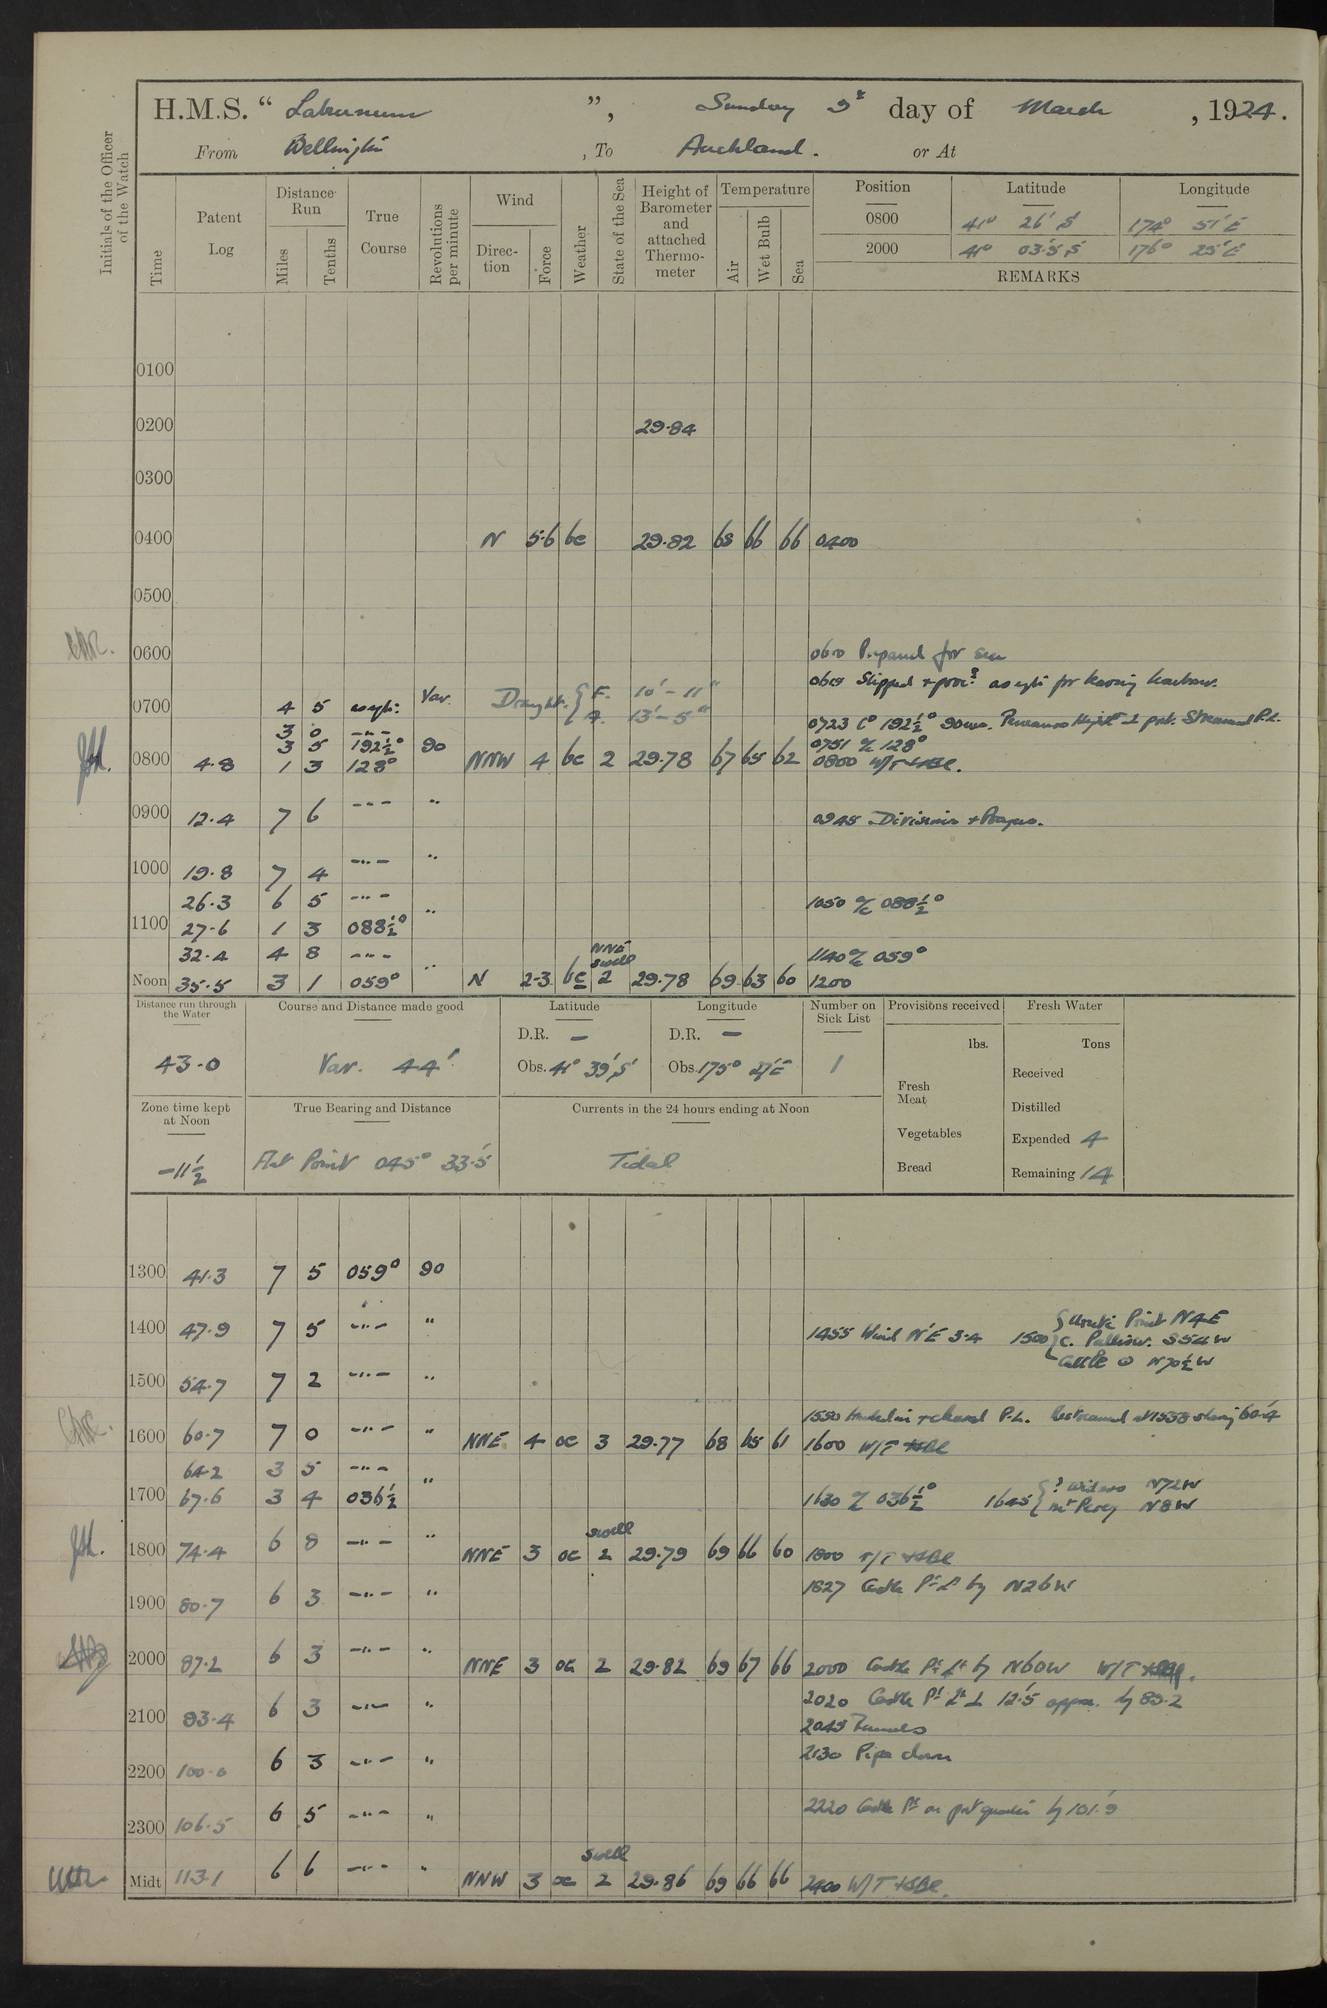 H.M.S. “ Laburnum ”, Sunday 9th day of March , 1924.
From Wellington , To Auckland . or At
Initials of the Officer of the Watch
Time Patent Log Distance Run Miles Tenths True Course Revolutions per minute Wind Direction Force Weather State of the Sea Height of Barometer and attached Thermometer Temperature Air Wet Bulb Sea
Position Latitude Longitude
0800 41° 26' S 174° 51' E
2000 41° 03'.5 S 176° 25' E
REMARKS
0100
0200 29.84
0300
0400 N 5.6 bc 29.82 68 66 66 0400
0500
0600 0600 Prepared for sea
0615 Slipped + proc.d as reqte for leaving harbour.
0700 4 5 as reqte: Var. Draught. { F. 10' - 11" A. 13' - 5"
3 0 -"-
0723 Co 192½° 90 revs.
3 5 192½° 90 0751 a/c 128°
0800 4.8 1 3 128° NNW 4 bc 2 29.78 67 65 62 0800 W/T
0900 12.4 7 6 -"- " 0945 Divisions + Prayers.
1000 19.8 7 4 -"- "
26.3 6 5 -"- 1050 a/c 088½°
1100 27.6 1 3 088½° "
32.4 4 8 -"- NNE swell 1140 a/c 059°
Noon 35.5 3 1 059° " N 2-3 bc 2 29.78 69 63 60 1200
Distance run through the Water Course and Distance made good Latitude Longitude Number on Sick List Provisions received Fresh Water
D.R. — D.R. — lbs. Tons
43.0 Var. 44' Obs. 41° 39' S Obs. 175° 27' E 1 Received
Fresh Meat
Zone time kept at Noon True Bearing and Distance Currents in the 24 hours ending at Noon Distilled
Vegetables Expended 4
-11½ Flat Point 045° 33'.5 Tidal Bread Remaining 14
1300 41.3 7 5 059° 90
1400 47.9 7 5 -"- " 1455 Wind N'E 3.4 1500 { Point N4E
C. Palliser. S54W
N70½W
1500 54.7 7 2 -"- "
1530 Handed in + cleared P.L. 60.4
1600 60.7 7 0 -"- " NNE 4 oc 3 29.77 68 65 61 1600 W/T
64.2 3 5 -"-
1700 67.6 3 4 036½ " 1630 a/c 036½° 1645 { N72W
Mt Percy N8W
1800 74.4 6 8 -"- " NNE 3 oc swell 2 29.79 69 66 60 1800
1827 Castle Pt Lt by N26W
1900 80.7 6 3 -"- "
2000 87.2 6 3 -"- " NNE 3 oc 2 29.82 69 67 66 2000 Castle Pt Lt by N60W W/T
2020 Castle Pt Lt ⊥ 12'.5 approx. by 89.2
2100 93.4 6 3 -"- " 2045 Rounds
2200 100.0 6 3 -"- " 2130 Pipe down
2300 106.5 6 5 -"- " 2220 Castle Pt on port quarter by 101.9
Midt 113.1 6 6 -"- " NNW 3 oc swell 2 29.86 69 66 66 2400 W/T